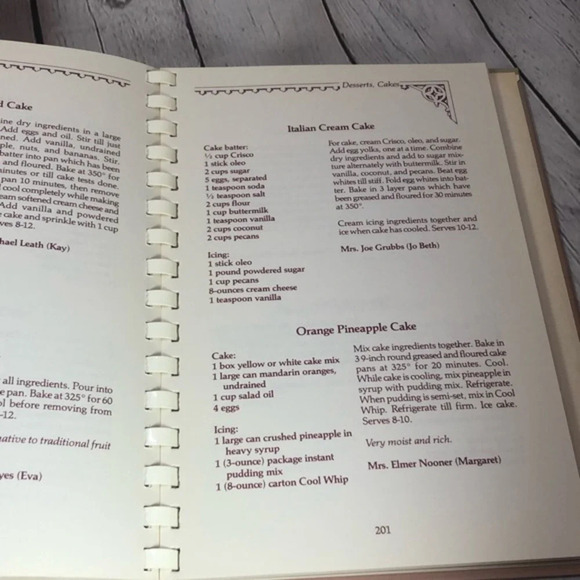 d Cake
ne dry ingredients in a large
Add eggs and oil. Stir till just
ned. Add vanilla, undrained
ple, nuts, and bananas. Stir.
batter into pan which has been
and floured. Bake at 350° for
minutes or till cake tests done.
pan 10 minutes, then remove
cool completely while making
eam softened cream cheese and
Add vanilla and powdered
cake and sprinkle with 1 cup
ves 8-12.
hael Leath (Kay)
all ingredients. Pour into
e pan. Bake at 325° for 60
ol before removing from
-12.
native to traditional fruit
yes (Eva)
Desserts, Cakes
Italian Cream Cake
Cake batter:
½ cup Crisco
1 stick oleo
2 cups sugar
5 eggs, separated
1 teaspoon soda
½ teaspoon salt
2 cups flour
1 cup buttermilk
1 teaspoon vanilla
2 cups coconut
2 cups pecans
Icing:
1 stick oleo
1 pound powdered sugar
1 cup pecans
8-ounces cream cheese
1 teaspoon vanilla
For cake, cream Crisco, oleo, and sugar.
Add egg yolks, one at a time. Combine
dry ingredients and add to sugar mix-
ture alternately with buttermilk. Stir in
vanilla, coconut, and pecans. Beat egg
whites till stiff. Fold egg whites into bat-
ter. Bake in 3 layer pans which have
been greased and floured for 30 minutes
at 350°.
Cream icing ingredients together and
ice when cake has cooled. Serves 10-12.
Mrs. Joe Grubbs (Jo Beth)
Orange Pineapple Cake
Cake:
1 box yellow or white cake mix
1 large can mandarin oranges,
undrained
1 cup salad oil
4 eggs
Icing:
1 large can crushed pineapple in
heavy syrup
1 (3-ounce) package instant
pudding mix
1 (8-ounce) carton Cool Whip
Mix cake ingredients together. Bake in
3 9-inch round greased and floured cake
pans at 325° for 20 minutes. Cool.
While cake is cooling, mix pineapple in
syrup with pudding mix. Refrigerate.
When pudding is semi-set, mix in Cool
Whip. Refrigerate till firm. Ice cake.
Serves 8-10.
Very moist and rich.
Mrs. Elmer Nooner (Margaret)
201